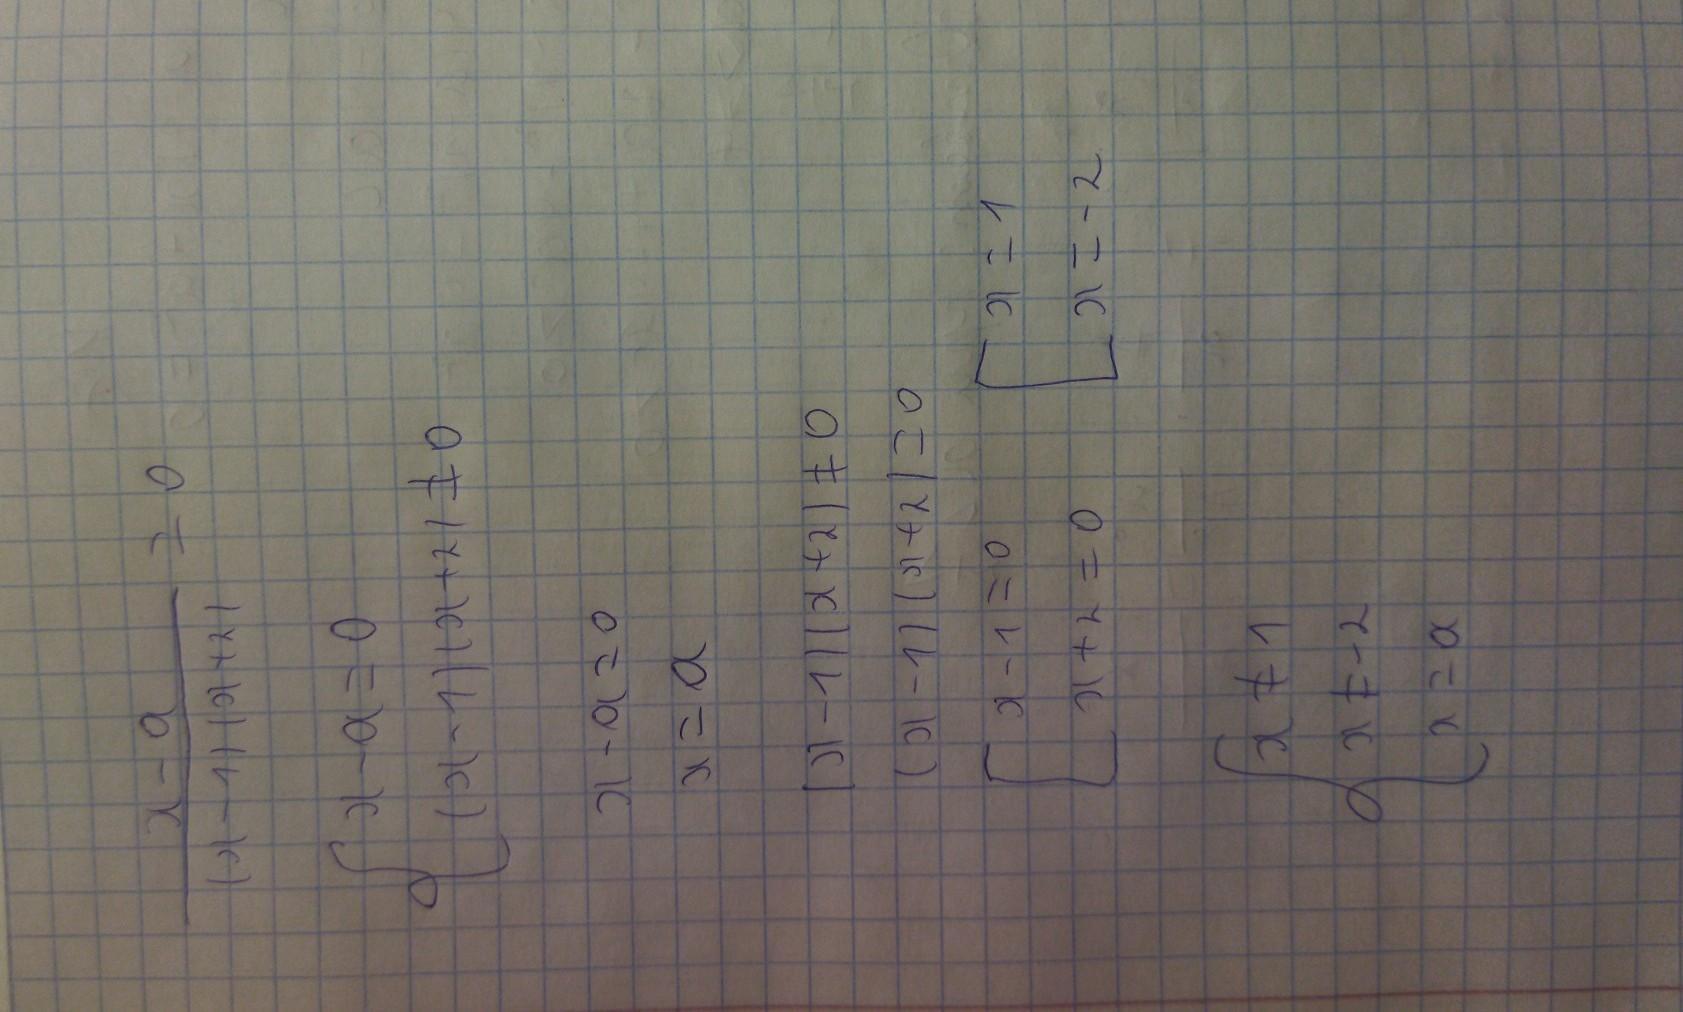 x - a / (x - 1)(x + 2) = 0
{ x - a = 0
(x - 1)(x + 2) ≠ 0
x - a = 0
x = a
(x - 1)(x + 2) ≠ 0
(x - 1)(x + 2) = 0
[ x - 1 = 0 [ x = 1
x + 2 = 0 x = -2
{ x ≠ 1
x ≠ -2
x = a